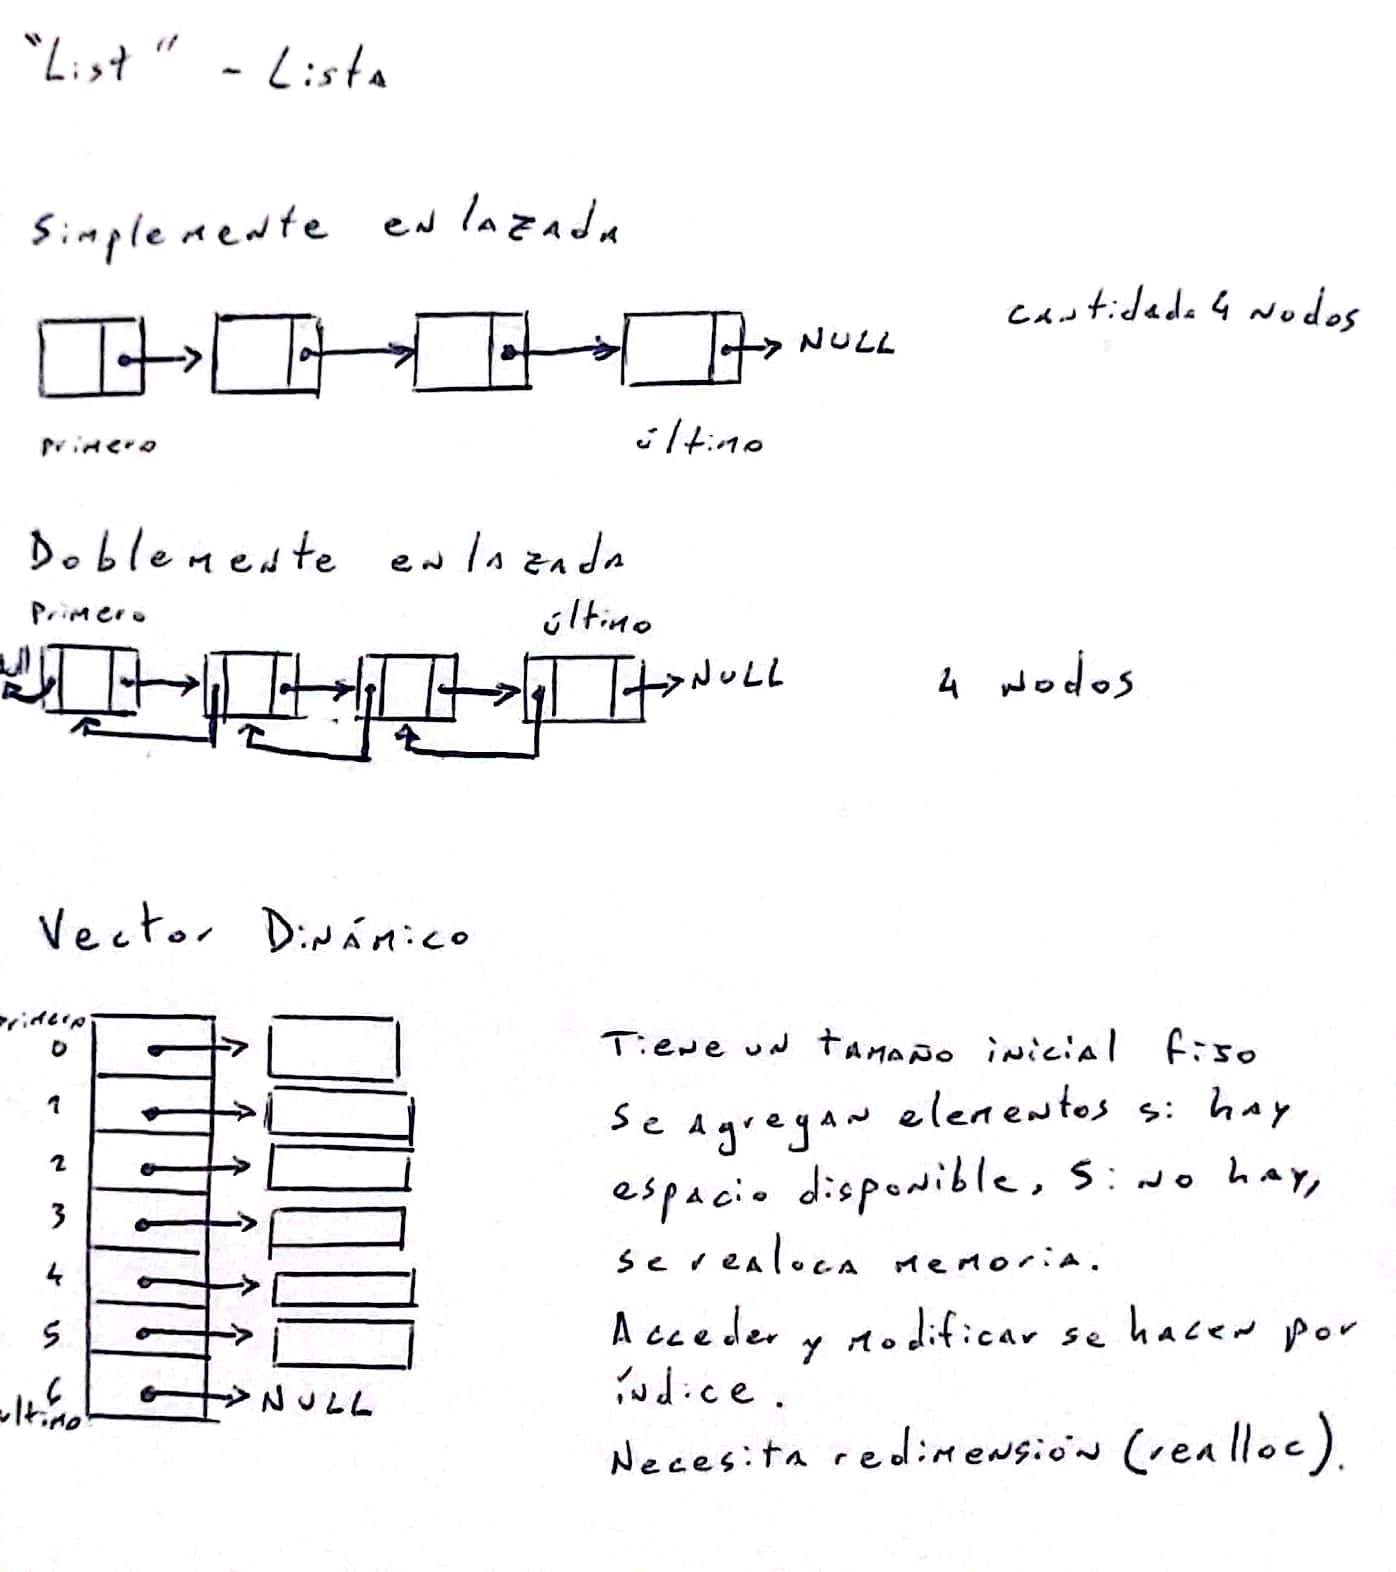 "List" - Lista
Simplemente enlazada
cantidad: 4 nodos
NULL
primero
último
Doblemente enlazada
Primero
último
NULL
4 nodos
Vector Dinámico
primero
0
1
2
3
4
5
6
último
NULL
Tiene un tamaño inicial fiso
Se agregan elementos si hay
espacio disponible, Si no hay,
se realoca memoria.
Acceder y modificar se hacen por
índice.
Necesita redimensión (realloc).